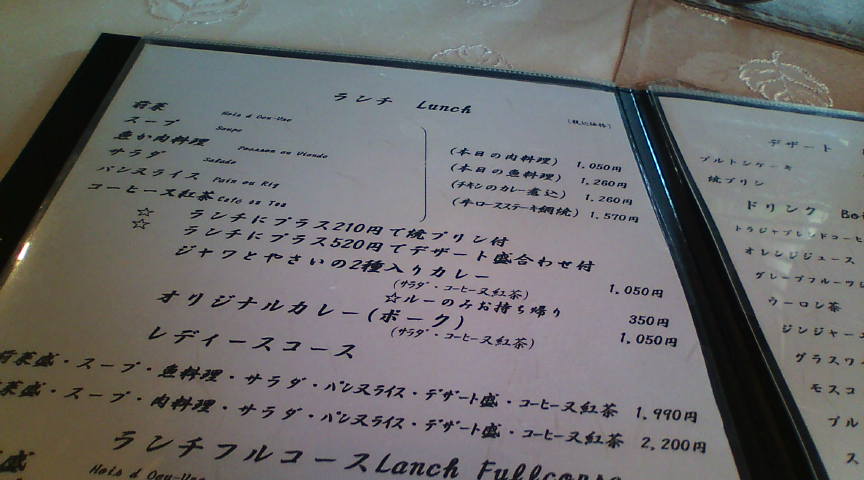 ランチ Lunch
(税込価格)
前菜 Hois d Oeu-Vae
スープ Soupe
魚か肉料理 Poasson ou Viande
サラダ Salade
パンヌライス Pain ou Riz
コーヒーヌ紅茶 Café ou Tea
(本日の肉料理) 1,050円
(本日の魚料理) 1,260円
(チキンのカレー煮込) 1,260円
(牛ロースステーキ網焼) 1,570円
☆ ランチにプラス210円で焼プリン付
☆ ランチにプラス520円でデザート盛合わせ付
ジャワとやさいの2種入りカレー 1,050円
(サラダ・コーヒーヌ紅茶)
☆ルーのみお持ち帰り 350円
オリジナルカレー(ポーク) 1,050円
(サラダ・コーヒーヌ紅茶)
レディースコース
前菜盛・スープ・魚料理・サラダ・パンヌライス・デザート盛・コーヒーヌ紅茶 1,990円
菜盛・スープ・肉料理・サラダ・パンヌライス・デザート盛・コーヒーヌ紅茶 2,200円
ランチフルコースLanch Fullcorse
盛 Hois d Oeu-Vae
デザート
ブルトンケーキ
焼プリン
ドリンク Bo
トラジャブレンドコーヒ
オレンジジュース
グレープフルーツ
ウーロン茶
ジンジャー
グラスワ
モスコ
ブル
ス